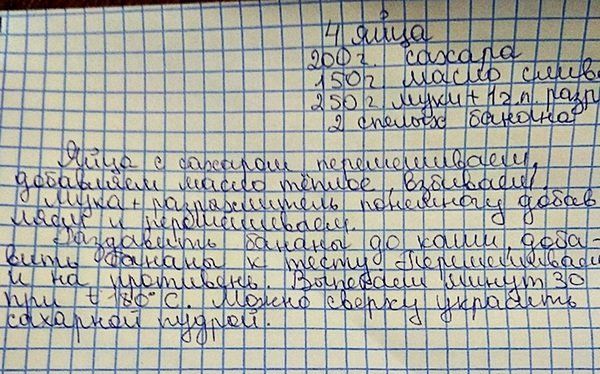 4 яйца
200 г. сахара
150 г. масло слив
250 г. муки + 1 г.п. разр
2 спелых банана
Яйца с сахаром перемешиваем,
добавляем масло тёплое, взбиваем,
мука + разрыхлитель понемногу добав
ляем и перемешиваем.
Раздавить бананы до каши, доба-
вить бананы к тесту перемешиваем
и на противень. Выпекаем минут 30
при t 180°C. Можно сверху украсить
сахарной пудрой.